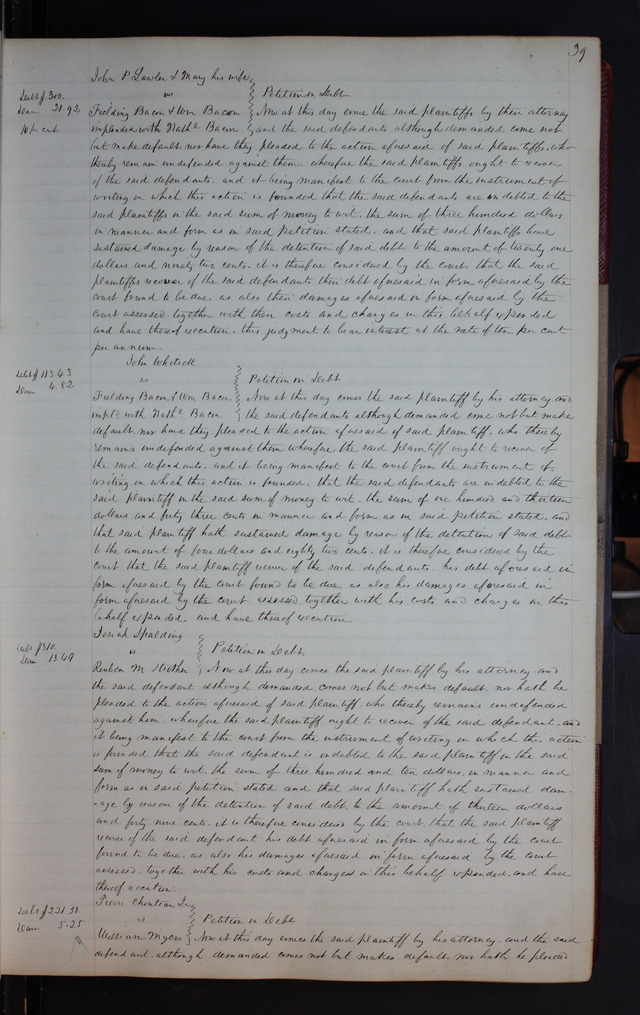 39
John P Lawler & Mary his wife
Debt $300.
vs
Petition in Debt
Dam 21.92
Fielding Bacon & Wm Bacon
Now at this day come the said plaintiffs by their attorney
10 pr cent
impleaded with Nathl Bacon
and the said defendants although demanded come not
but make default nor have they pleaded to the action aforesaid of said plaintiffs, who
thereby remain undefended against them. wherefore the said plaintiffs ought to recover
of the said defendants. and it being manifest to the court from the instrument of
writing on which this action is founded that the said defendants are indebted to the
said plaintiffs in the said sum of money to wit. the sum of three hundred dollars
in manner and form as in said petition stated. and that said plaintiffs have
sustained damage by reason of the detention of said debt to the amount of twenty one
dollars and ninety two cents. it is therefore considered by the court. that the said
plaintiffs recover of the said defendants their debt aforesaid in form aforesaid by the
court found to be due. as also their damages aforesaid in form aforesaid by the
court assessed. together with their costs and charges in this behalf expended
and have thereof execution. this judgment to bear interest at the rate of ten per cent
per annum.
John Whitsell
Debt $113.43
vs
Petition in Debt
Dam 4.82
Fielding Bacon & Wm Bacon
Now at this day comes the said plaintiff by his attorney and
impld with Nathl Bacon
the said defendants although demanded come not but make
default. nor have they pleaded to the action aforesaid of said plaintiff. who thereby
remains undefended against them wherefore the said plaintiff ought to recover of
the said defendants. and it being manifest to the court from the instrument of
writing on which this action is founded. that the said defendants are indebted to the
said plaintiff in the said sum of money to wit. the sum of one hundred and thirteen
dollars and forty three cents in manner and form as in said petition stated. and
that said plaintiff hath sustained damage by reason of the detention of said debt
to the amount of four dollars and eighty two cents. it is therefore considered by the
court that the said plaintiff recover of the said defendants. his debt aforesaid in
form aforesaid by the court found to be due. as also his damages aforesaid in
form aforesaid by the court assessed together with his costs and charges in this
behalf expended. and have thereof execution.
Josiah Spalding
Debt $310.
vs
Petition in Debt.
Dam 13.49
Reuben M Strother
Now at this day comes the said plaintiff by his attorney. and
the said defendant although demanded comes not but makes default. nor hath he
pleaded to the action aforesaid of said plaintiff. who thereby remains undefended
against him. wherefore the said plaintiff ought to recover of the said defendant. and
it being manifest to the court from the instrument of writing on which this action
is founded that the said defendant is indebted to the said plaintiff in the said
sum of money to wit. the sum of three hundred and ten dollars. in manner and
form as in said petition stated. and that said plaintiff hath sustained dam-
-age by reason of the detention of said debt. to the amount of thirteen dollars
and forty nine cents. it is therefore considered by the court. that the said plaintiff
recover of the said defendant his debt aforesaid in form aforesaid by the court
found to be due. as also his damages aforesaid in form aforesaid by the court
assessed. together with his costs and charges in this behalf expended. and have
thereof execution
Pierre Chouteau Jr
Debt $221.50
vs
Petition in Debt
Dam 5.25
William Myers
Now at this day comes the said plaintiff by his attorney. and the said
defendant. although demanded comes not but makes default. nor hath he pleaded